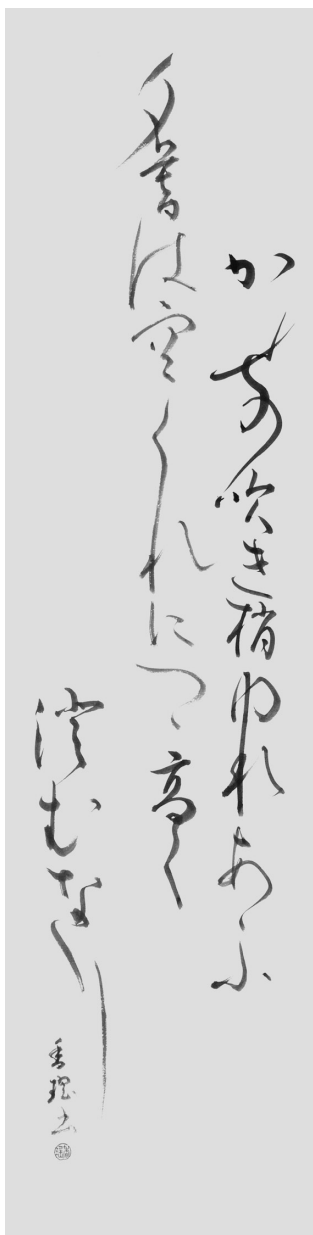 かぜ吹き梢ゆれあふ
夕暮は空くれにつゝ高く
澄むなり